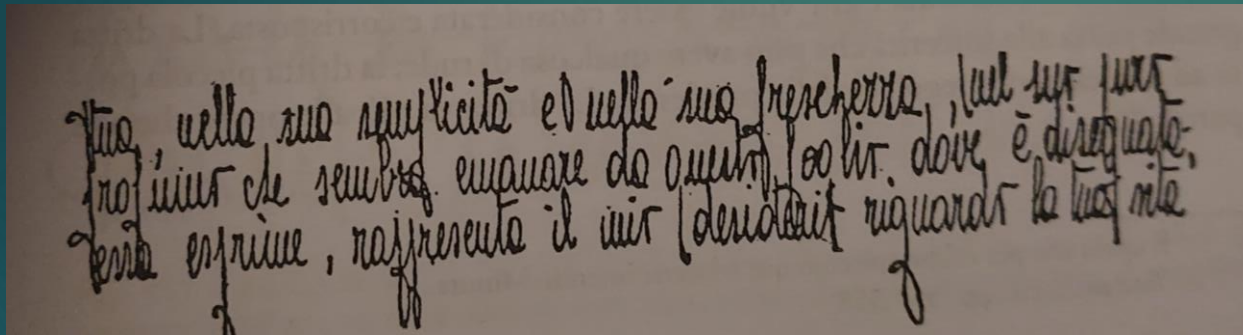 tua, nella sua semplicità ed nella sua freschezza, nel suo puro
profumo che sembra emanare da questo foglio dove è disegnata,
essa esprime, rappresenta il mio desiderio riguardo la tua vita